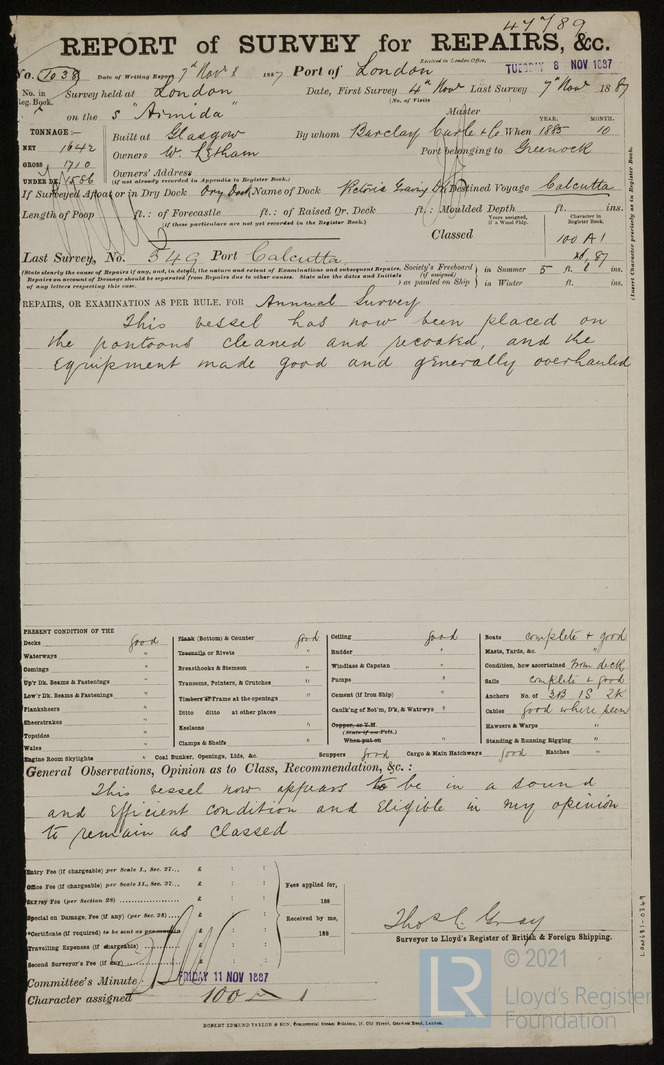 47789
REPORT of SURVEY for REPAIRS, &c.
Received in London Office,
TUESDAY 8 NOV 1887
No. Date of Writing Report 7th Novr 8 1887 Port of London
No. in Reg. Book. Survey held at London Date, First Survey 4th Novr Last Survey 7th Novr 1887
(No. of Visits
on the s "Armida" Master
TONNAGE:— Built at Glasgow By whom Barclay Curle & Co When 1885 10
YEAR. MONTH.
NET 1642
GROSS 1710
UNDER DK. 1586
Owners W. Lytham Port belonging to Greenock
Owners' Address
(if not already recorded in Appendix to Register Book.)
If Surveyed Afloat or in Dry Dock Dry Dock Name of Dock Victoria Graving Destined Voyage Calcutta
Length of Poop ft.: of Forecastle ft.: of Raised Qr. Deck ft.: Moulded Depth ft. ins.
(if these particulars are not yet recorded in the Register Book.)
Years assigned, if a Wood Ship.
Character in Register Book.
Classed 100 A 1
87
(Insert Character precisely as in Register Book.
Last Survey, No. 549 Port Calcutta
(State clearly the cause of Repairs if any, and, in detail, the nature and extent of Examinations and subsequent Repairs.
Repairs on account of Damage should be separated from Repairs due to other causes. State also the dates and Initials
of any letters respecting this case.
Society's Freeboard (if assigned) as painted on Ship
in Summer 5 ft. 2 ins.
in Winter ft. ins.
REPAIRS, OR EXAMINATION AS PER RULE, FOR Annual Survey
This vessel has now been placed on
the pontoons cleaned and recoated, and the
Equipment made good and generally overhauled
PRESENT CONDITION OF THE
Decks good
Waterways "
Comings "
Up'r Dk. Beams & Fastenings "
Low'r Dk. Beams & Fastenings "
Planksheers "
Sheerstrakes "
Topsides "
Wales "
Engine Room Skylights "
Plank (Bottom) & Counter good
Treenails or Rivets "
Breasthooks & Stemson "
Transoms, Pointers, & Crutches "
Timbers or Frame at the openings "
Ditto ditto at other places "
Keelsons "
Clamps & Shelfs "
Coal Bunker, Openings, Lids, &c.
Ceiling good
Rudder "
Windlass & Capstan "
Pumps "
Cement (if Iron Ship) "
Caulk'ng of Bot'm, D'k, & Watrwys "
Copper, or Y.M.
(State if on Felt.)
When put on
Scuppers good Cargo & Main Hatchways good Hatches "
Boats complete & good
Masts, Yards, &c. "
Condition, how ascertained from deck
Sails complete & good
Anchors No. of 3B 1S 2K
Cables good where seen
Hawsers & Warps "
Standing & Running Rigging "
General Observations, Opinion as to Class, Recommendation, &c.:
This vessel now appears to be in a sound
and Efficient condition and Eligible in my opinion
to remain as classed
Entry Fee (if chargeable) per Scale I., Sec. 27... £ : :
Office Fee (if chargeable) per Scale II., Sec. 27... £ : :
Survey Fee (per Section 28) £ : :
Special on Damage, Fee (if any) (per Sec. 28) £ : :
*Certificate (if required) to be sent as per margin £ : :
Travelling Expenses (if chargeable) £ : :
Second Surveyor's Fee (if any) £ : :
Fees applied for,
188
Received by me,
188
Thos C. Gray
Surveyor to Lloyd's Register of British & Foreign Shipping.
Committee's Minute FRIDAY 11 NOV 1887
Character assigned 100 A 1
ROBERT EDMUND TAYLOR & SON, Commercial Steam Printers, 19, Old Street, Goswell Road, London.
LON681-0369
LR
© 2021
Lloyd's Register
Foundation